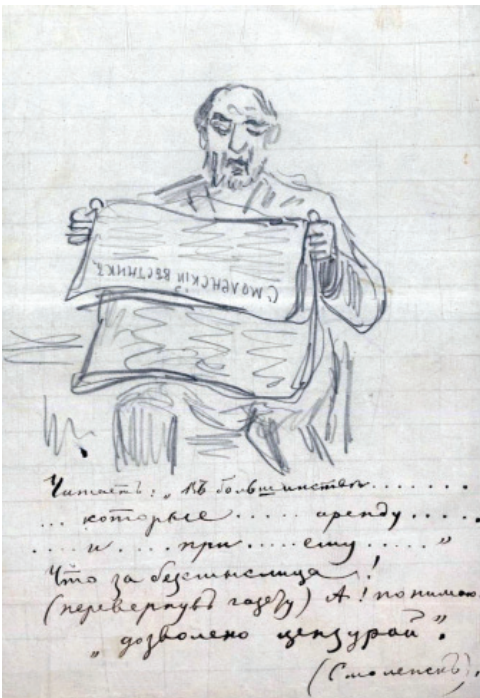 СМОЛЕНСКІЙ ВЕСТНИКЪ
Читаетъ: „въ большинствѣ . . . . . . .
... которые ..... аренду .....
..... и .... при .... ему ..... "
Что за безсмыслица!
(перевернувъ газету) А! понимаю
„дозволено цензурой".
(Смоленскъ).